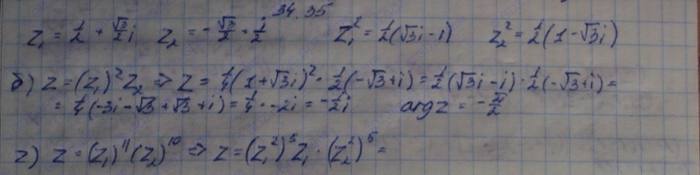 34.35
z₁ = 1/2 + √3/2 i z₂ = -√3/2 + i/2 z₁² = 1/2(√3i - 1) z₂² = 1/2(1 - √3i)
б) z = (z₁)² z₂ ⇒ z = 1/4(1 + √3i)² · 1/2(-√3 + i) = 1/2(√3i - i) · 1/2(-√3 + i) =
= 1/4(-3i - √3 + √3 + i) = 1/4 · -2i = -1/2 i arg z = -π/2
г) z = (z₁)¹¹ (z₂)¹⁰ ⇒ z = (z₁²)⁵ z₁ · (z₂²)⁵ =